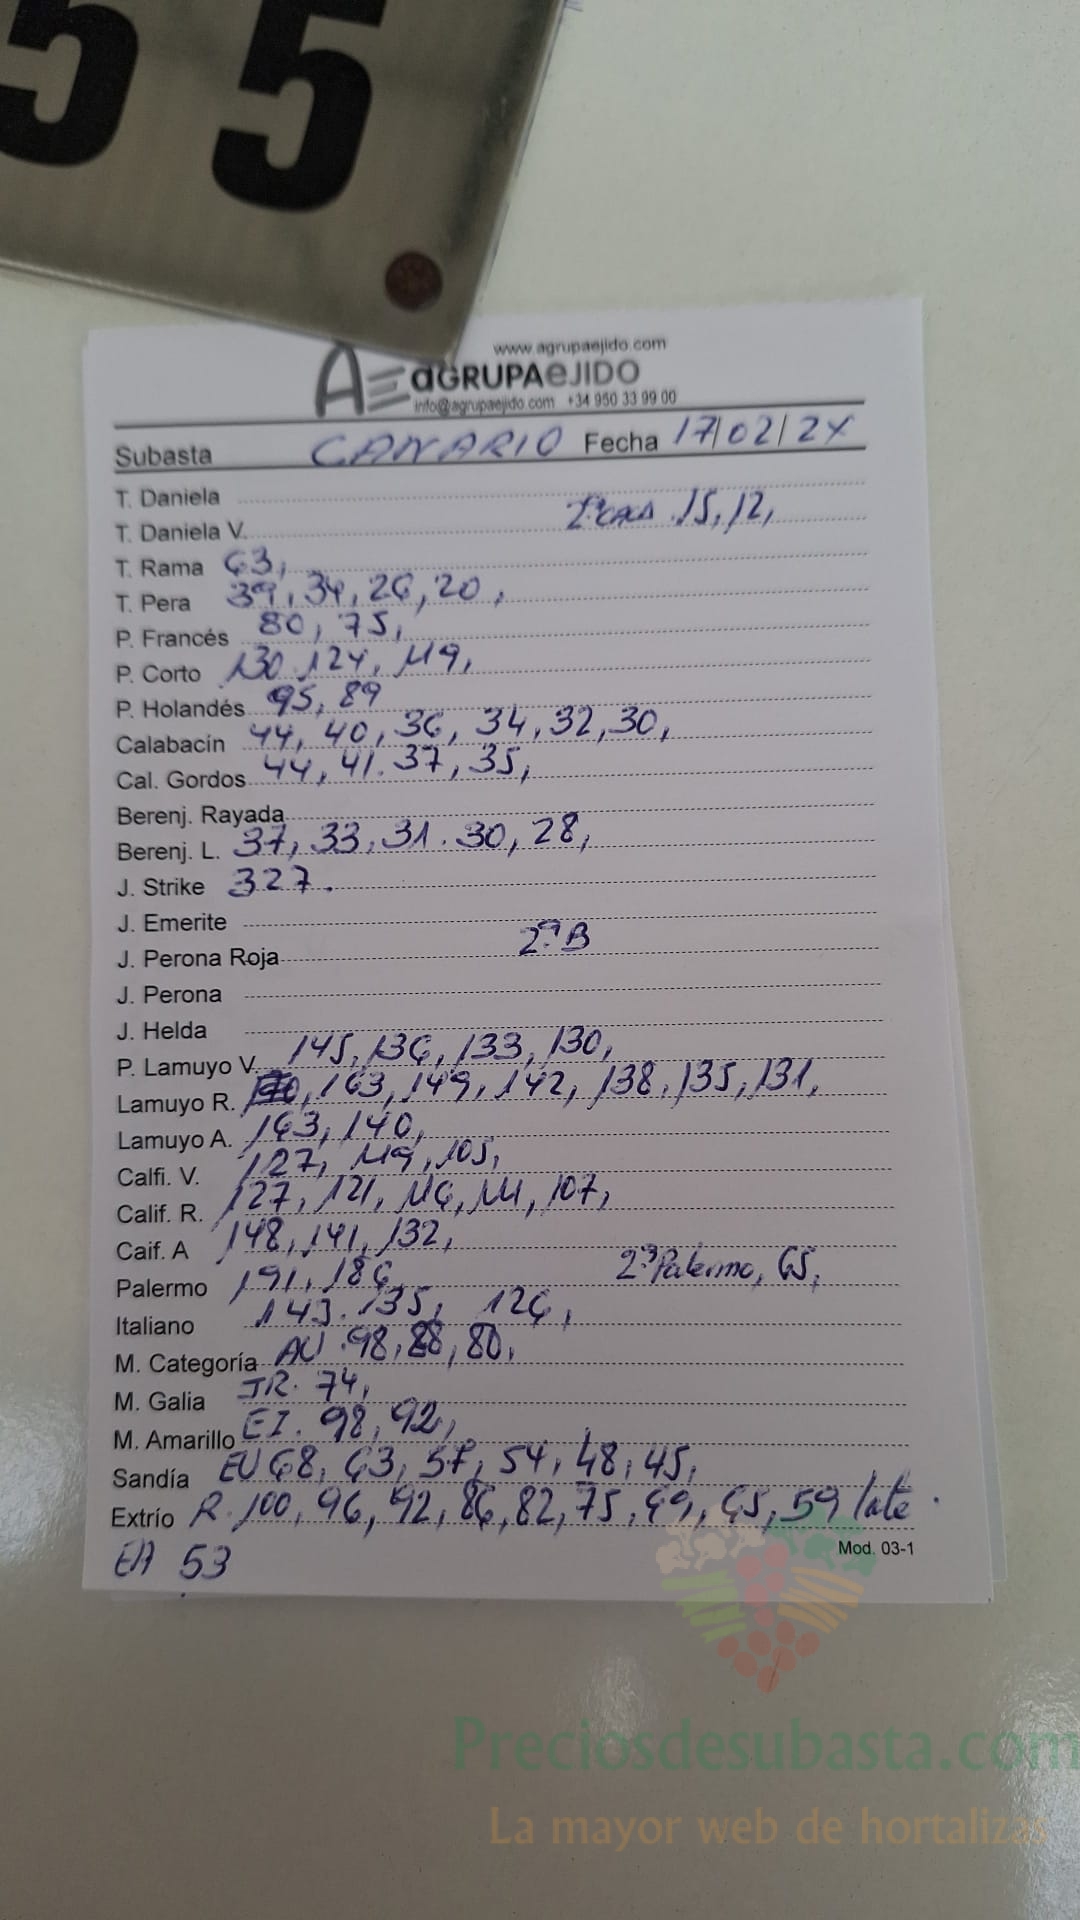 55
www.agrupaejido.com
AE aGRUPAeJIDO
info@agrupaejido.com +34 950 33 99 00
Subasta CANARIO Fecha 17/02/24
T. Daniela
T. Daniela V. 2ª 15, 12,
T. Rama 63,
T. Pera 39, 34, 26, 20,
P. Francés 80, 75,
P. Corto 130. 124, 119,
P. Holandés 95, 89
Calabacín 44, 40, 36, 34, 32, 30,
Cal. Gordos 44, 41. 37, 35,
Berenj. Rayada
Berenj. L. 37, 33, 31. 30, 28,
J. Strike 327.
J. Emerite
J. Perona Roja 2ª B
J. Perona
J. Helda
P. Lamuyo V. 145, 136, 133, 130,
Lamuyo R. 163, 149, 142, 138, 135, 131,
Lamuyo A. 163, 140,
Calfi. V. 127, 119, 105,
Calif. R. 127, 121, 116, 111, 107,
Caif. A 148, 141, 132,
Palermo 191, 186, 2ª Palermo, 65,
Italiano 143. 135, 126,
M. Categoría AU. 98, 88, 80,
M. Galia JR. 74,
M. Amarillo EI. 98, 92,
Sandía EU 68, 63, 57, 54, 48, 45,
Extrío R. 100, 96, 92, 86, 82, 75, 69, 65, 59 late.
Mod. 03-1
EA 53
Preciosdesubasta.com
La mayor web de hortalizas